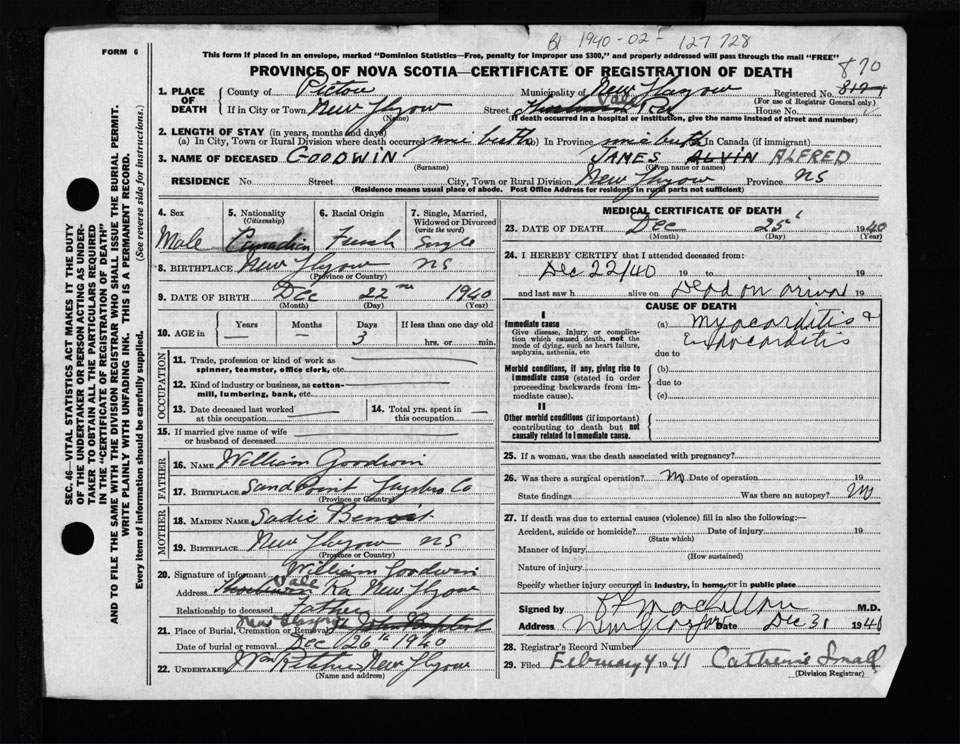 1940-02- 127728
FORM 6
This form if placed in an envelope, marked "Dominion Statistics—Free, penalty for improper use $300," and properly addressed will pass through the mail "FREE"
PROVINCE OF NOVA SCOTIA—CERTIFICATE OF REGISTRATION OF DEATH
870
1. PLACE OF DEATH County of Pictou Municipality of New Glasgow Registered No. 812
(For use of Registrar General only)
If in City or Town New Glasgow Street Vale Rd House No.
(Name) (If death occurred in a hospital or institution, give the name instead of street and number)
2. LENGTH OF STAY (in years, months and days)
(a) In City, Town or Rural Division where death occurred since birth (b) In Province since birth In Canada (if immigrant)
3. NAME OF DECEASED GOODWIN JAMES ALVIN ALFRED
(Surname) (Given name or names)
RESIDENCE No. Street City, Town or Rural Division New Glasgow Province NS
(Residence means usual place of abode. Post Office Address for residents in rural parts not sufficient)
4. Sex 5. Nationality (Citizenship) 6. Racial Origin 7. Single, Married, Widowed or Divorced (write the word)
Male Canadian French Single
8. BIRTHPLACE New Glasgow NS
(Province or Country)
9. DATE OF BIRTH Dec 22nd 1940
(Month) (Day) (Year)
10. AGE in Years Months Days If less than one day old
— — 3 hrs. or min.
OCCUPATION
11. Trade, profession or kind of work as spinner, teamster, office clerk, etc.
12. Kind of industry or business, as cotton-mill, lumbering, bank, etc.
13. Date deceased last worked at this occupation 14. Total yrs. spent in this occupation
15. If married give name of wife or husband of deceased
FATHER
16. NAME William Goodwin
17. BIRTHPLACE Sand Point Guysboro Co
(Province or Country)
MOTHER
18. MAIDEN NAME Sadie Benoit
19. BIRTHPLACE New Glasgow NS
(Province or Country)
20. Signature of informant William Goodwin
Address Vale Rd New Glasgow
Relationship to deceased Father
21. Place of Burial, Cremation or Removal New Glasgow
Date of burial or removal Dec 26th 1940
22. UNDERTAKER Wm Ritchie New Glasgow
(Name and address)
MEDICAL CERTIFICATE OF DEATH
23. DATE OF DEATH Dec 25 1940
(Month) (Day) (Year)
24. I HEREBY CERTIFY that I attended deceased from:
Dec 22/40 19 to 19
and last saw h alive on Dead on arrival 19
CAUSE OF DEATH
I
Immediate cause (a) Myocarditis & Endocarditis
Give disease, injury or complication which caused death, not the mode of dying, such as heart failure, asphyxia, asthenia, etc
due to
Morbid conditions, if any, giving rise to immediate cause (stated in order proceeding backwards from immediate cause).
(b)
due to
(c)
II
Other morbid conditions (if important) contributing to death but not causally related to immediate cause.
25. If a woman, was the death associated with pregnancy?
26. Was there a surgical operation? No Date of operation 19
State findings Was there an autopsy? No
27. If death was due to external causes (violence) fill in also the following:—
Accident, suicide or homicide? Date of injury 19
(State which)
Manner of injury
(How sustained)
Nature of injury
Specify whether injury occurred in industry, in home, or in public place
Signed by MacLellan M.D.
Address New Glasgow Date Dec 31 1940
28. Registrar's Record Number
29. Filed February 4 1941 Catherine Small
(Division Registrar)
SEC. 46—VITAL STATISTICS ACT MAKES IT THE DUTY
OF THE UNDERTAKER OR PERSON ACTING AS UNDER-
TAKER TO OBTAIN ALL THE PARTICULARS REQUIRED
IN THE "CERTIFICATE OF REGISTRATION OF DEATH"
AND TO FILE THE SAME WITH THE DIVISION REGISTRAR WHO SHALL ISSUE THE BURIAL PERMIT.
WRITE PLAINLY WITH UNFADING INK. THIS IS A PERMANENT RECORD.
Every item of information should be carefully supplied. (See reverse side for instructions.)